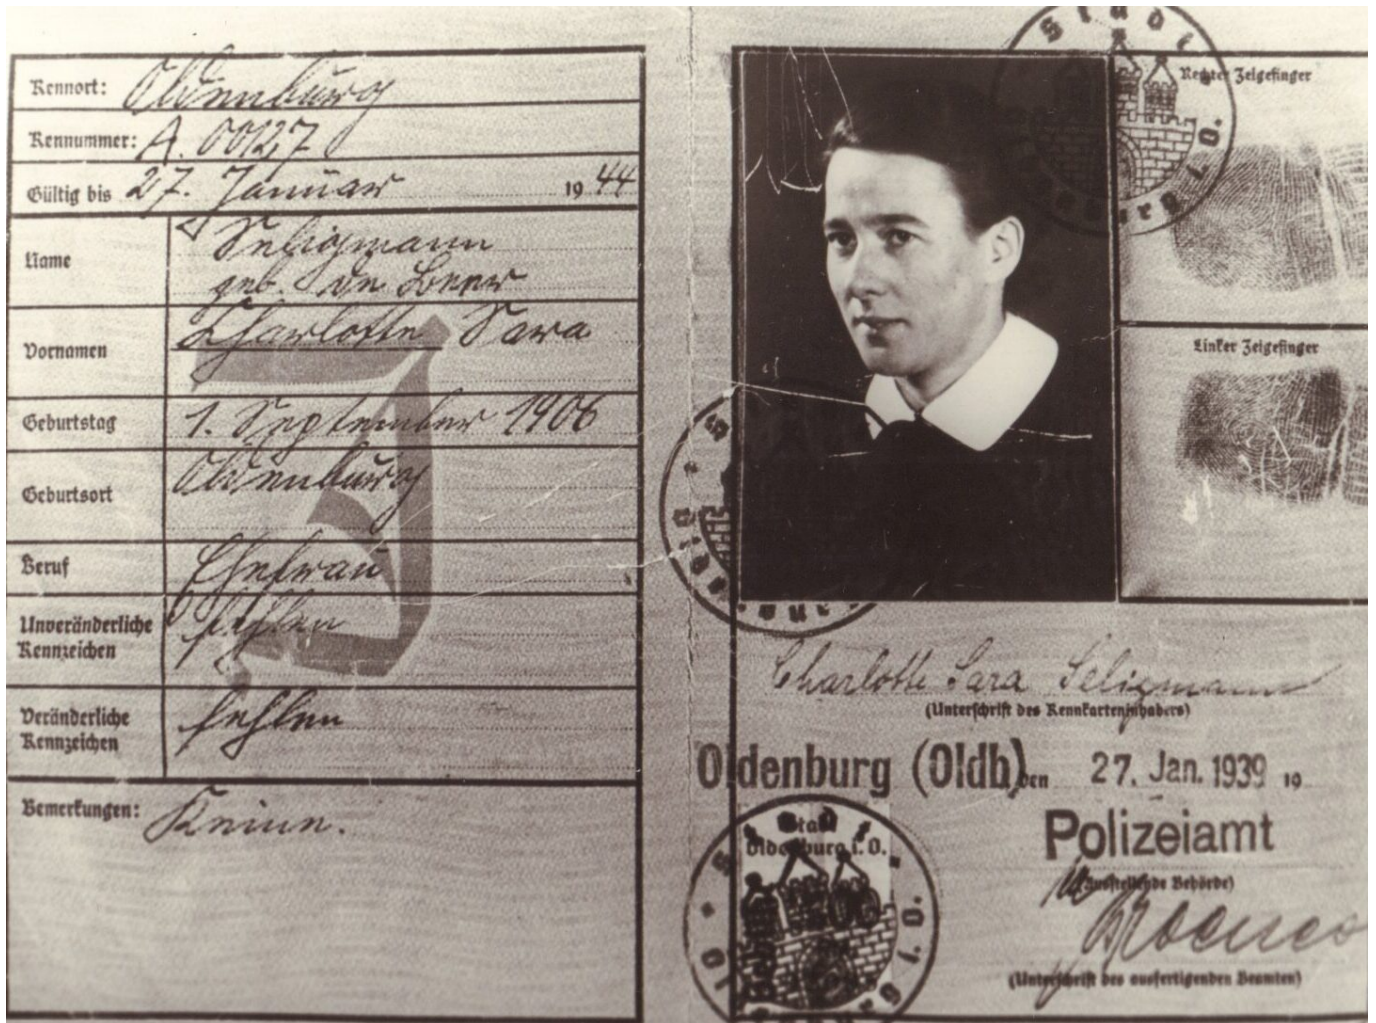 Kennort: Oldenburg
Kennummer: A. 00127
Gültig bis 27. Januar 1944
Name Seligmann
geb. de Beer
Vornamen Charlotte Sara
Geburtstag 1. September 1906
Geburtsort Oldenburg
Beruf Ehefrau
Unveränderliche Kennzeichen fehlen
Veränderliche Kennzeichen fehlen
Bemerkungen: Keine.
J
Stadt Oldenburg i. O.
Rechter Zeigefinger
Linker Zeigefinger
Charlotte Sara Seligmann
(Unterschrift des Kennkarteninhabers)
Oldenburg (Oldb), den 27. Jan. 1939 19
Stadt
Oldenburg i. O.
Polizeiamt
(Ausstellende Behörde)
(Unterschrift des ausfertigenden Beamten)